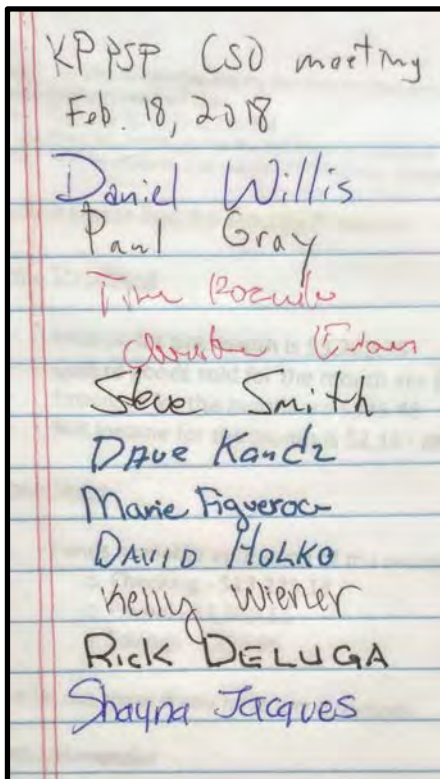 KPPSP CSO meeting
Feb. 18, 2018
Daniel Willis
Paul Gray
Steve Smith
Dave Kandz
Marie Figueroa
DAVID HOLKO
Kelly Wiener
Rick DELUGA
Shayna Jacques